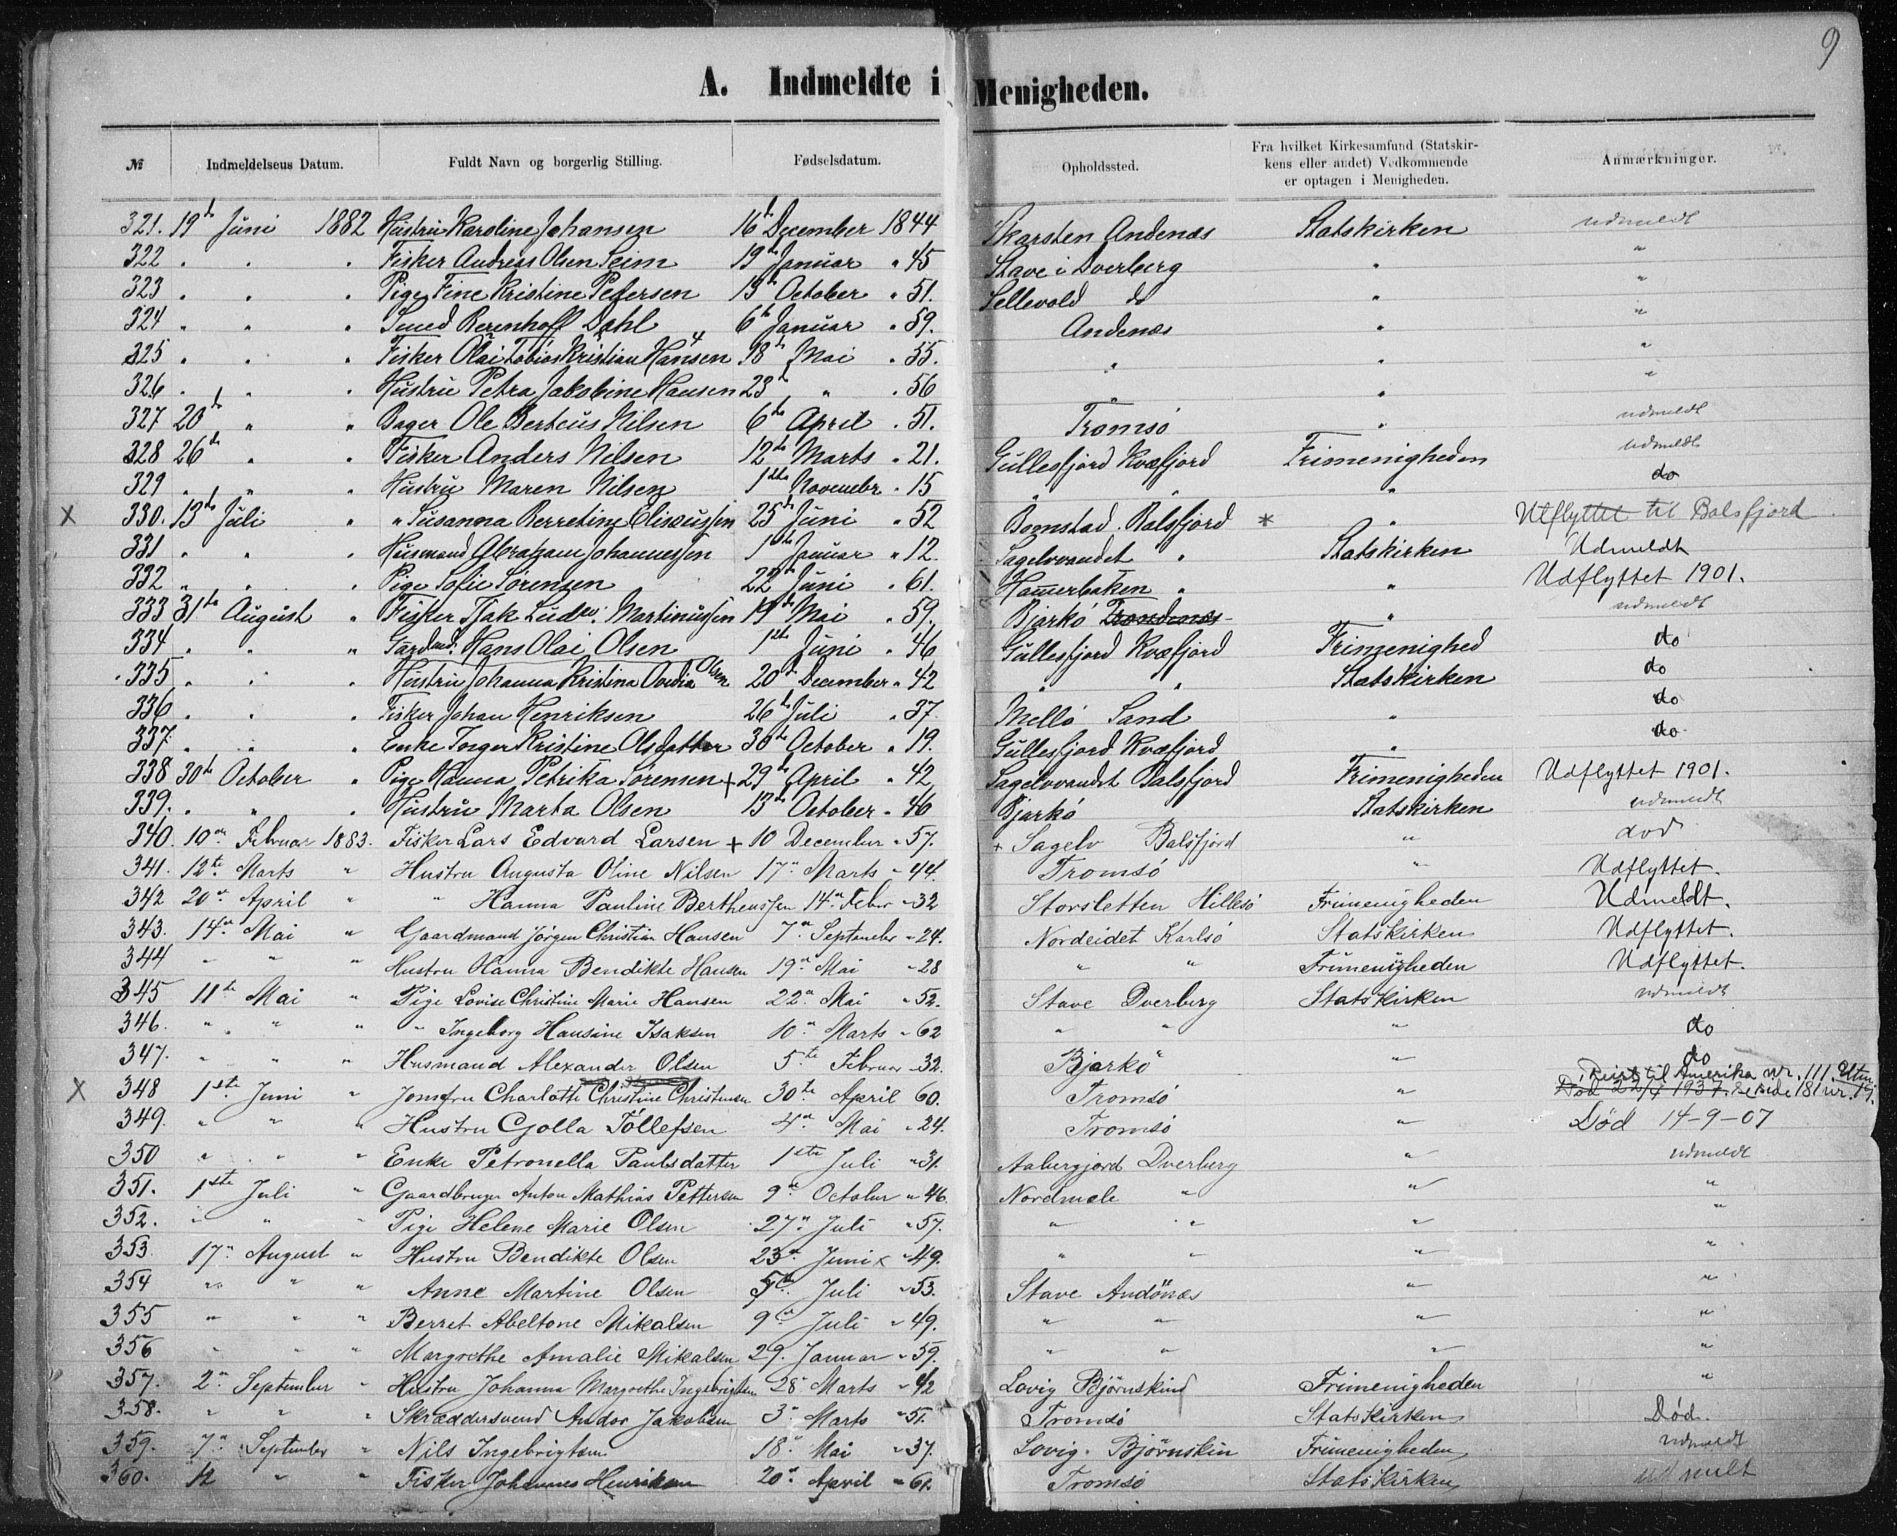 9
A. Indmeldte i Menigheden.
№ Indmeldelseus Datum. Fuldt Navn og borgerlig Stilling. Fødselsdatum. Opholdssted. Fra hvilket Kirkesamfund (Statskir-
kens eller andet) Vedkommende
er optagen i Menigheden. Anmærkninger.
321. 19de Juni 1882 Hustru Karoline Johansen 16de December 1844 Skarsten Andenæs Statskirken udmeldt
322 " " " Fisker Andreas Olsen Seim 19de Januar " 45 Stave i Dverberg " "
323 " " " Pige Fine Kristine Petersen 13de October " 51. Sellevold do " "
324 " " " Smed Berenhoff Dahl 6te Januar " 59. Andenæs " "
325 " " " Fisker Olai Tobias Kristian Hansen 18de Mai " 55. " " "
326 " " " Hustru Petra Jakobine Hansen 23de " " 56 " " "
327 20de " " Bager Ole Berteus Nilsen 6te April " 51. Tromsö " udmeldt
328 26de " " Fisker Anders Nilsen 12te Marts " 21. Gullesfjord Kvæfjord Frimenigheden udmeldt
329 " " " Hustru Maren Nilsen 1ste Novembr " 15 " " " do
X 330. 13de Juli " " Susanna Berretine Eliseussen 25de Juni " 52 Bomstad. Balsfjord * " Utflyttet til Balsfjord
331 " " " Husmand Abraham Johannessen 1ste Januar " 12. Sagelvvandet " Statskirken Udmeldt
332 " " " Pige Sofie Sörensen 22de Juni " 61. Hamerbaken " " Udflyttet 1901.
333 31te August " Fisker Isak Ludv. Martinussen 19de Mai " 59. Bjarkö Trondenæs " udmeldt
334 " " " Gardmd. Hans Olai Olsen 1ste Juni " 46 Gullesfjord Kvæfjord Frimenighed do
335 " " " Hustru Johanna Kristina Ovedia Olsen 20de December " 42 " " Statskirken do
336 " " " Fisker Johan Henriksen 26de Juli " 37 Mellö Sand " do
337 " " " Enke Inger Kristine Olsdatter 30te October " 19. Gullesfjord Kvæfjord " do
338 30te October " Pige Hanna Petrika Sörensen + 29de April " 42 Sagelvvandet Balsfjord Frimenigheden Udflyttet 1901.
339. " " " Hustru Marta Olsen 13de October " 46 Bjarkö Statskirken udmeldt
340. 10de Februar 1883. Fisker Lars Edvard Larsen + 10 December " 57. + Sagelv Balsfjord " död
341. 12te Marts " Hustru Augusta Oline Nilsen 17de Marts " 44. Tromsö " Udflyttet.
342 20de April " " Hanna Pauline Berthenssen 14de Febr " 32 Storsletten Hillesö Frimenigheden Udmeldt.
343. 14de Mai " Gaardmand Jörgen Christian Hansen 7de September " 24. Nordeidet Karlsö Statskirken Udflyttet.
344 " " " Hustru Hanna Bendikte Hansen 19de Mai " 28 " " Frimenigheden Udflyttet.
345 11te Mai " Pige Lovise Christine Marie Hansen 22de Mai " 52. Stave Dverberg Statskirken udmeldt
346. " " " Ingeborg Hansine Isaksen 10de Marts " 62 " " " do
347. " " " Husmand Alexander Olsen 5te Februar " 32. Bjarkö " do
X 348 1ste Juni " Jomfru Charlotte Christine Christensen 30te April 60. Tromsö " Reist til Amerika nr. 111. Utm.
Død 22/4 1937. Se side 181 nr. 19.
349. " " " Hustru Golla Töllefsen 4de Mai " 24. Tromsö " Død 14-9-07
350 " " " Enke Petronella Paulsdatter 1ste Juli " 31. Aabergjord Dverberg " udmeldt
351. 1ste Juli " Gaardbruger Anton Mathias Pettersen 9de October " 46. Nordmele " " "
352. " " " Pige Helene Marie Olsen 27de Juli " 57. " " " "
353. 17de August " Hustru Bendikte Olsen 23de Juni x " 49. " " " "
354 " " " Anne Martine Olsen 5te Juli " 53. Stave Andönæs " "
355 " " " Berret Abeltone Mikalsen 9de Juli " 49. " " " "
356 " " " Margrethe Amalie Mikalsen 29. Januar " 59. " " " "
357. 2de September " Hustru Johanna Margrethe Ingebrigtsen 28 Marts " 42 Lovig Björnskind Frimenigheden "
358. " " " Skræddersvend Andor Jakobsen 3de Marts " 51. Tromsö Statskirken Død.
359. 7de September " Nils Ingebrigtsen 18de Mai " 37. Lovig. Björnskin Frimenigheden udmeldt
360. " " Fisker Johannes Henriksen 20de April " 61. Tromsö Statskirken udmelt